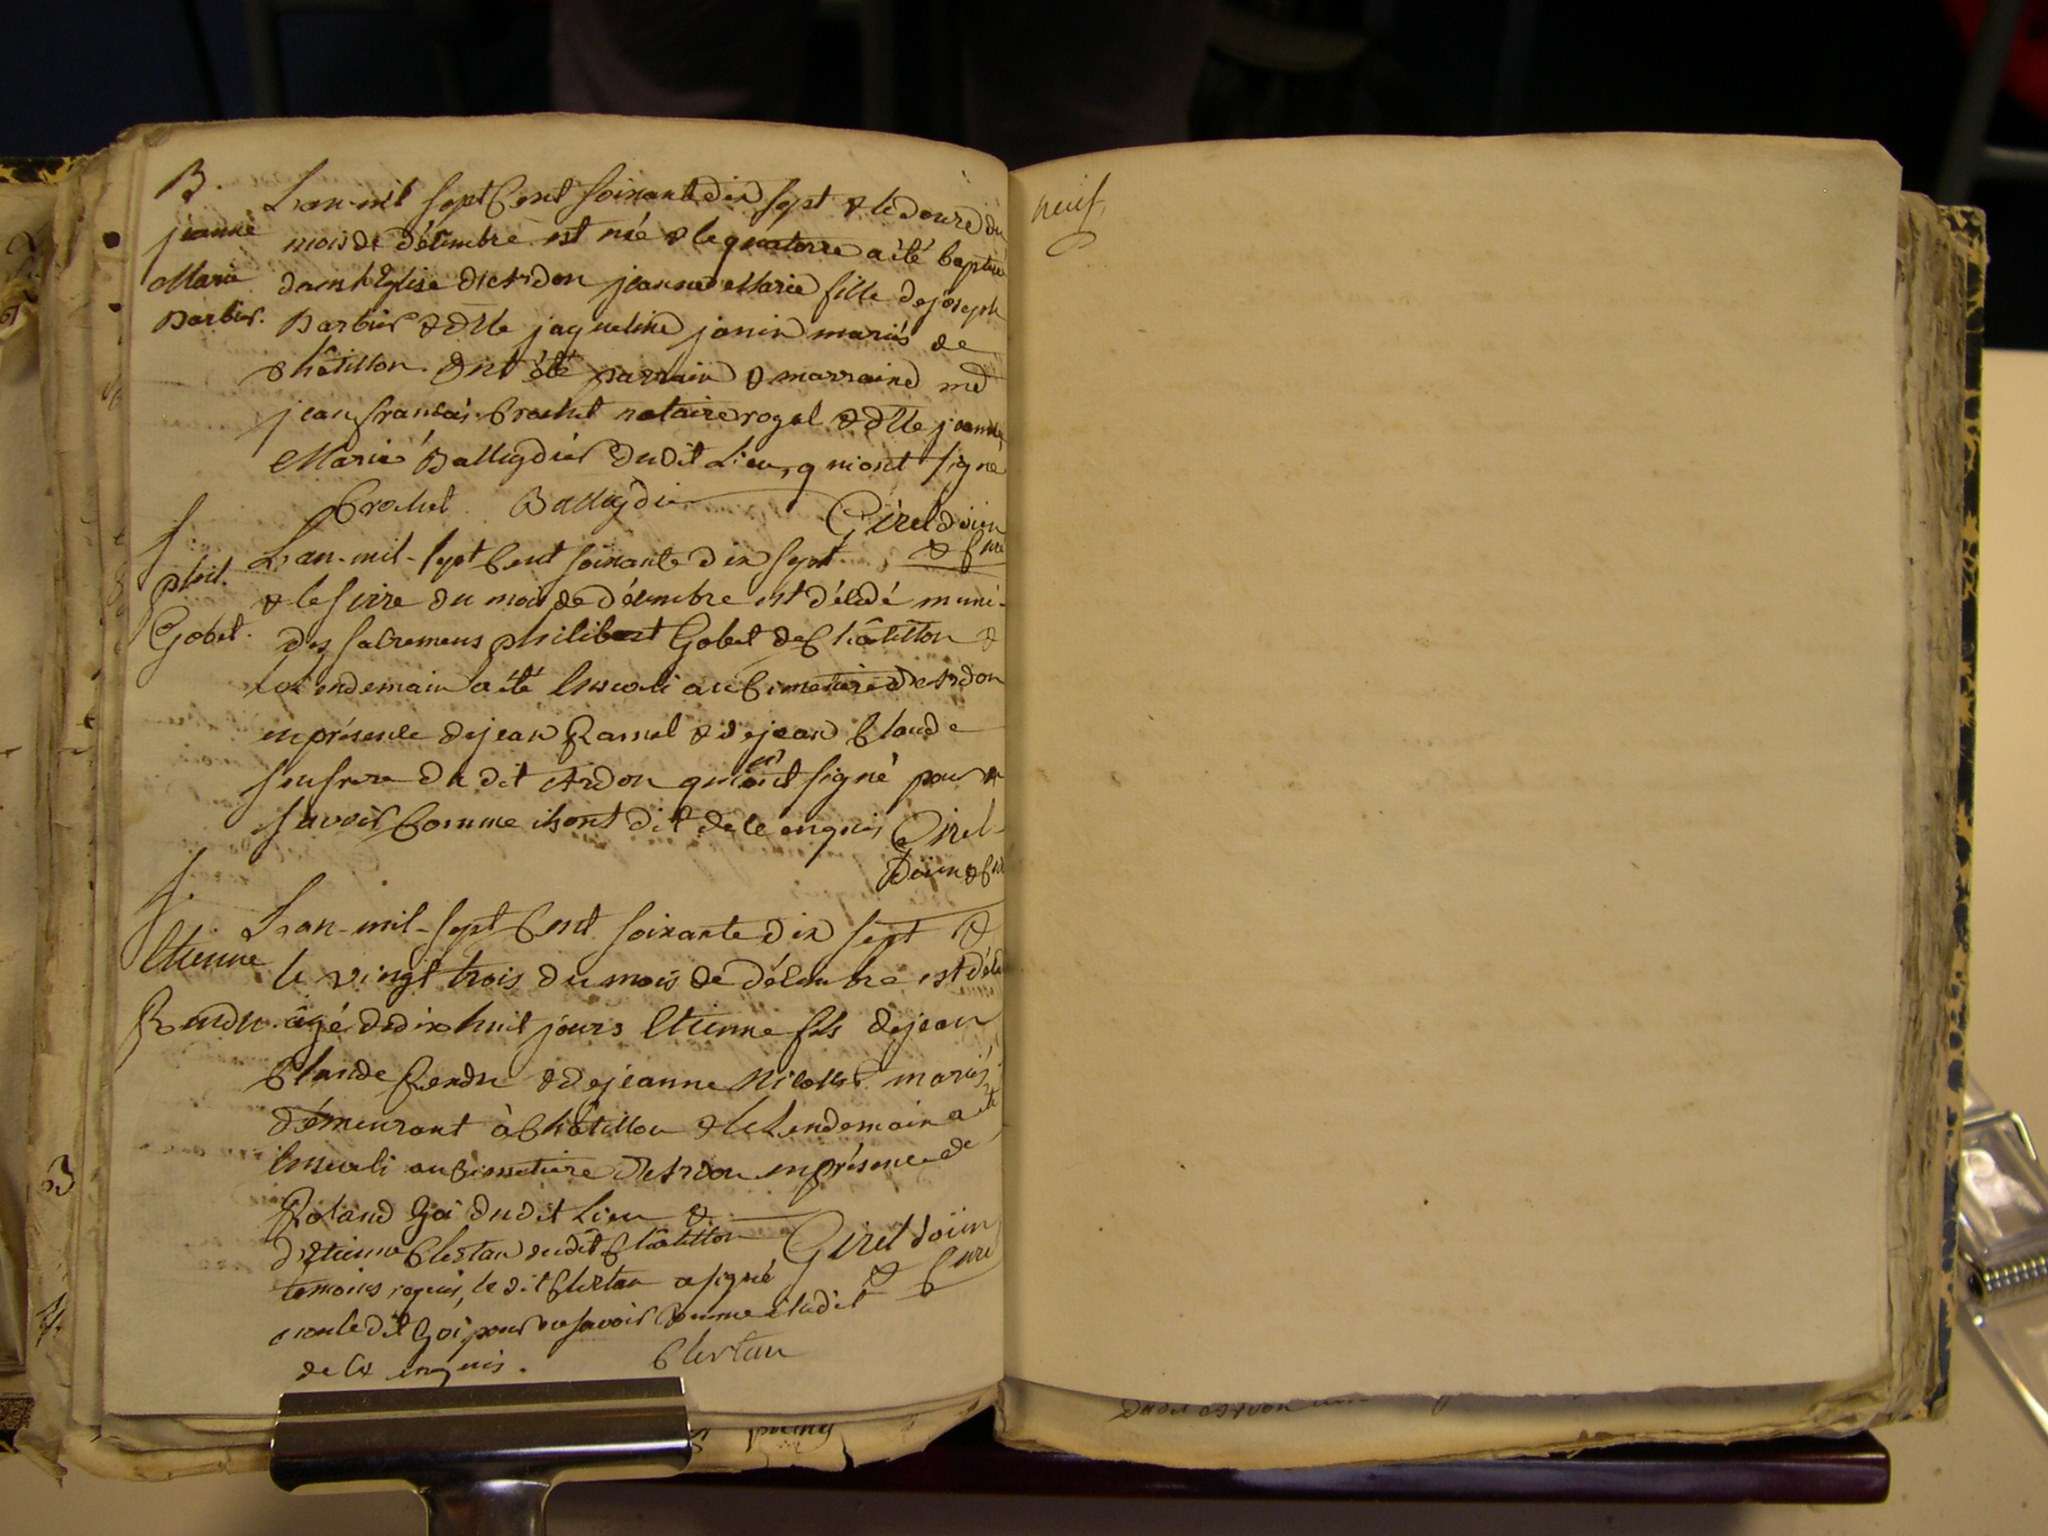 B.
jeanne
Marie
Barbier.
L'an mil sept Cent soixante dix sept & le douze du
mois de décembre est née & le quatorze a été baptisée
dans l'Eglise d'Ardon jeanne Marie fille de joseph
Barbier & dlle jaqueline janin mariés de
Châtillon. Ont été parrain & marraine me
jean francois Crochet notaire royal & dlle jeanne
Marie Balleydier dudit Lieu, qui ont signé
Crochet Balleydier
Girel doien
& Curé
S.
phil.
Gobet.
L'an mil sept Cent soixante dix sept
& le seize du mois de décembre est décédé muni
des sacremens philibert Gobet de Châtillon &
le Lendemain a été Enseveli au Cimetiere d'Ardon
en présence de jean Ramel & de jean Claude
son frere du dit Ardon qui n'ont signé pour ne
savoir Comme ils ont dit de ce enquis Girel
Doien & Curé
S.
Etienne
Rendu.
L'an mil sept Cent soixante dix sept &
le vingt trois du mois de décembre est décédé
âgé de dix huit jours Etienne fils de jean
Claude Rendu & de jeanne Nicollet mariés
démeurant à Châtillon & le Lendemain a été
Enseveli au Cimetiere d'Ardon en présence de
Roland Goi dudit Lieu &
d'Etienne Clertan dudit Châtillon
témoins requis, le dit Clertan a signé
non le dit Goi pour ne savoir Comme il a dit
de ce enquis.
Clertan
Girel doïen
& Curé
neuf
3